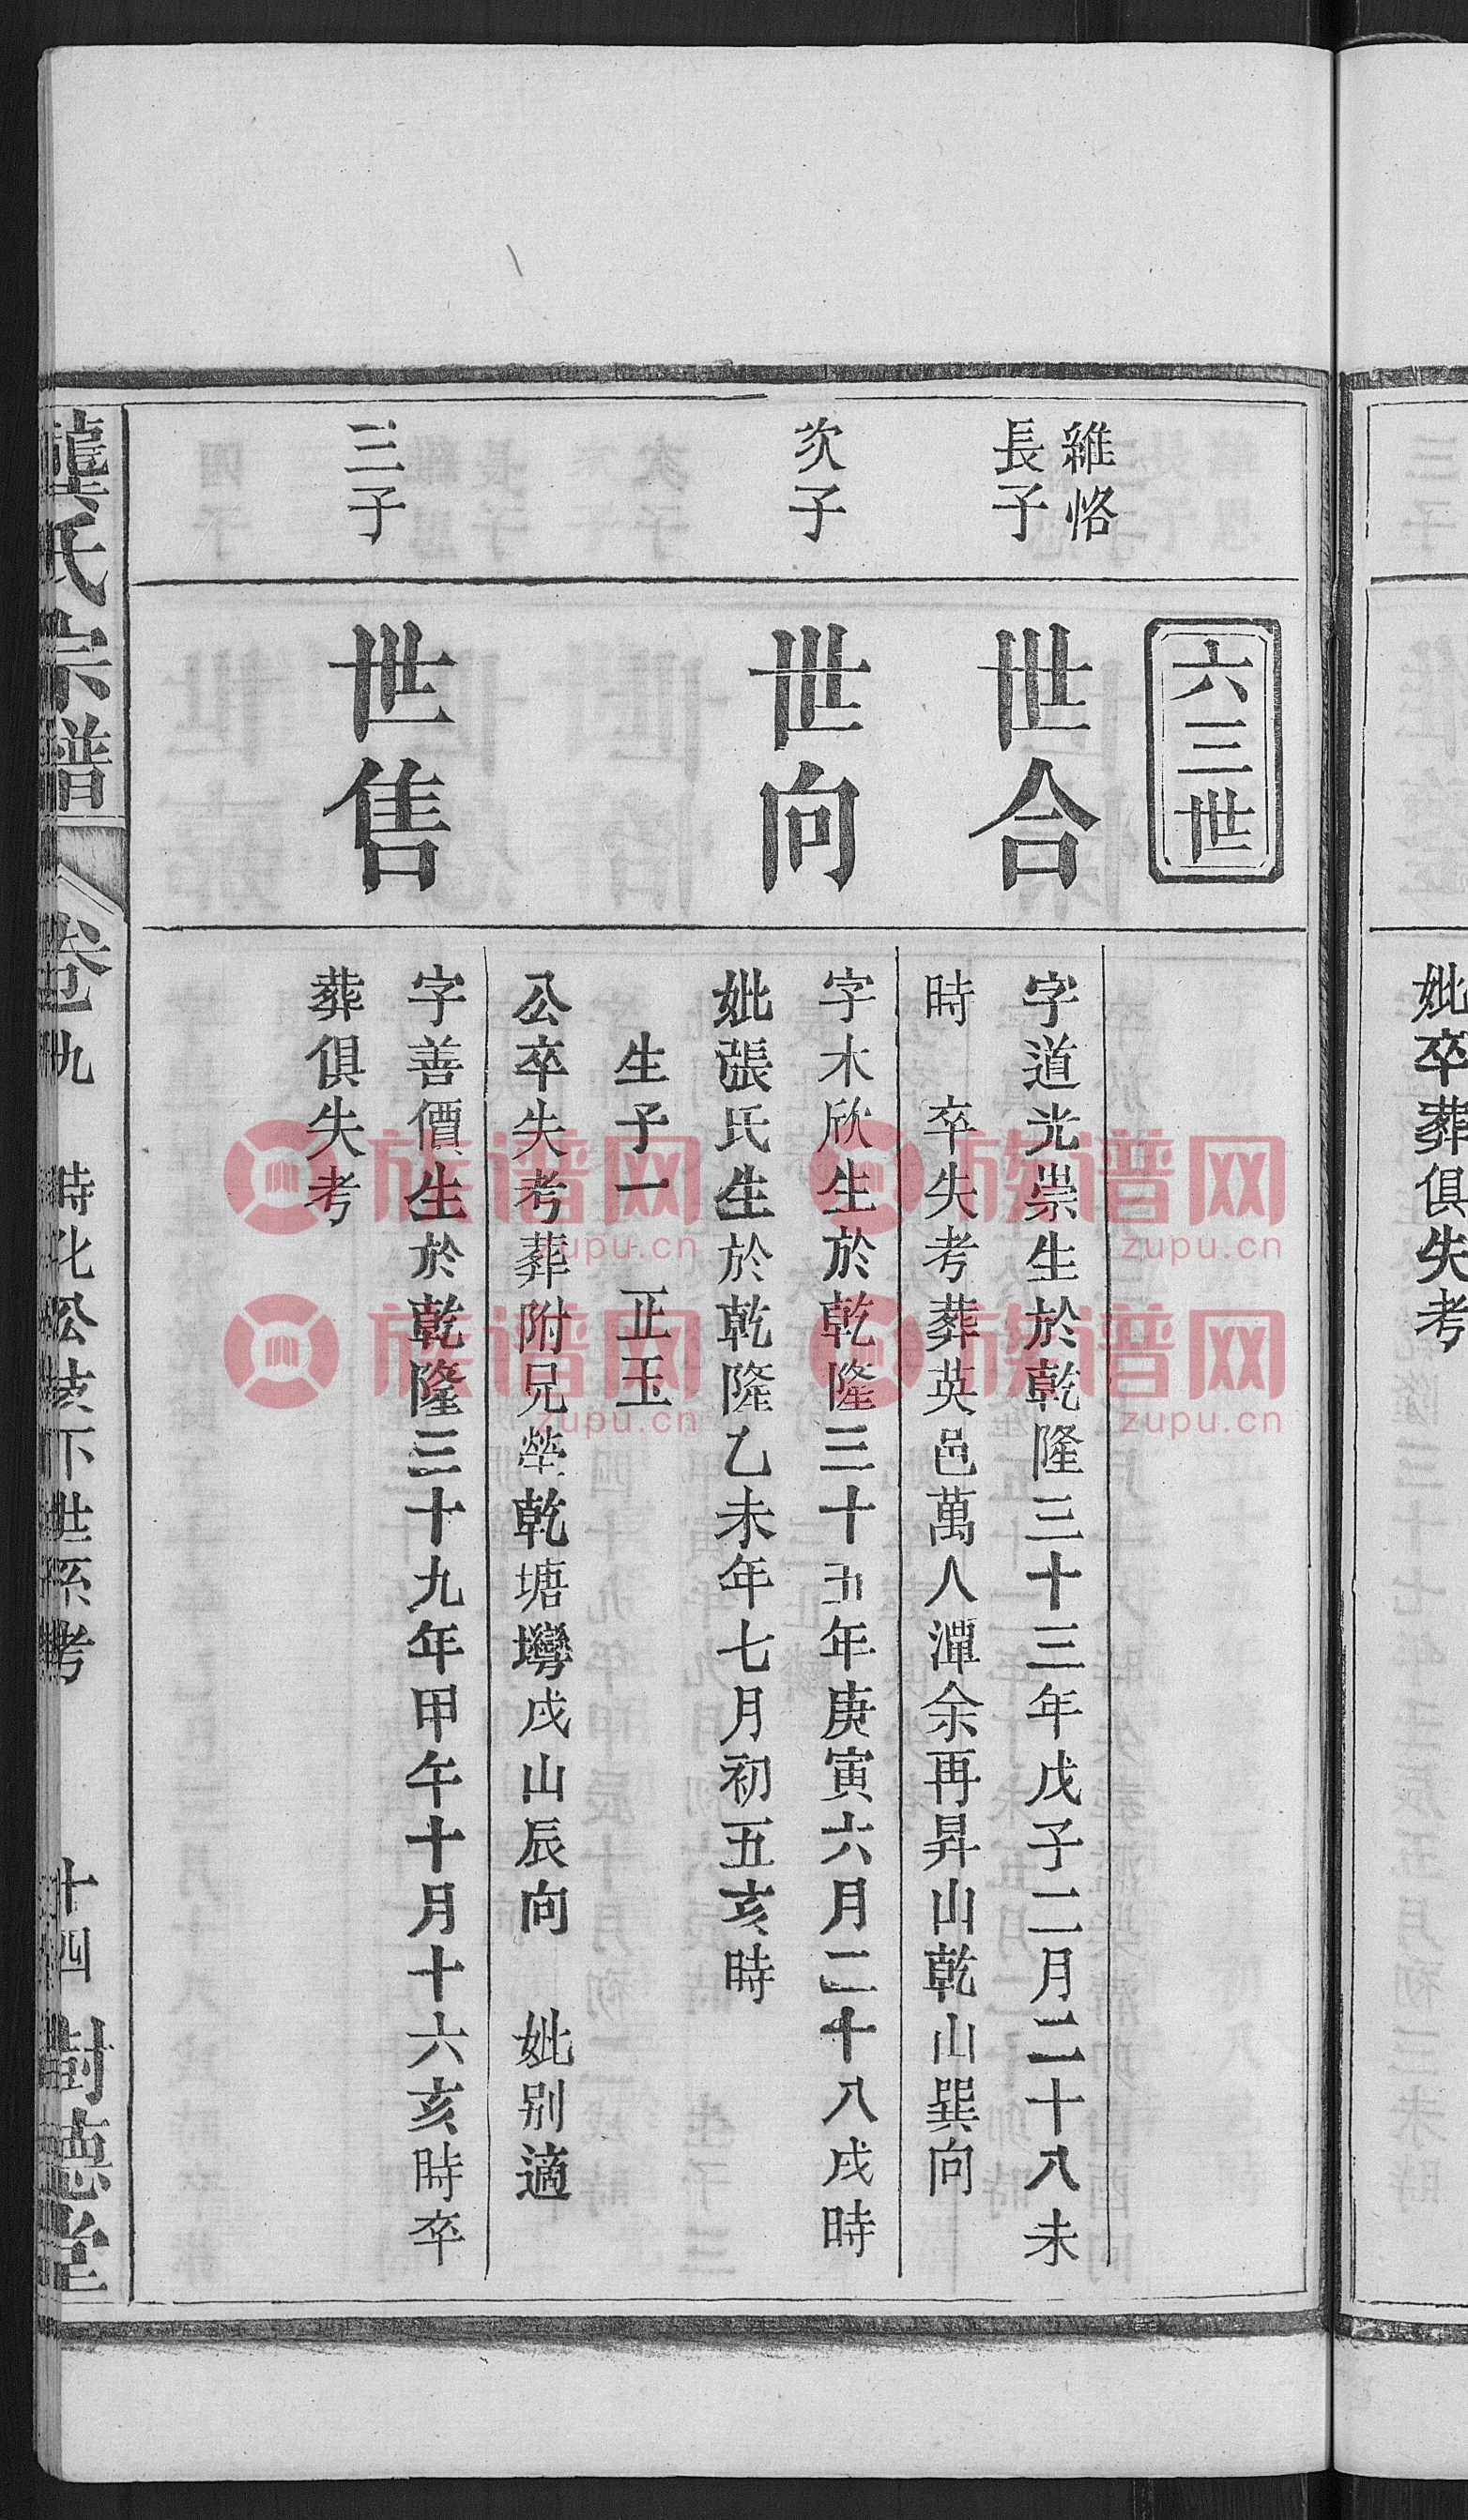 妣卒葬俱失考
六三世
維恪
長子
世合
字道光崇生於乾隆三十三年戊子二月二十八未
時　卒失考葬英邑萬人潭余再昇山乾山巽向
次子
世向
字木欣生於乾隆三十五年庚寅六月二十八戌時
妣張氏生於乾隆乙未年七月初五亥時
生子一　正玉
公卒失考葬附兄塋乾塘塆戌山辰向　妣別適
三子
世售
字善價生於乾隆三十九年甲午十月十六亥時卒
葬俱失考
龔氏宗譜　卷九　時化公枝下世系考　十四　樹德堂
族谱网
zupu.cn
族谱网
zupu.cn
族谱网
zupu.cn
族谱网
zupu.cn